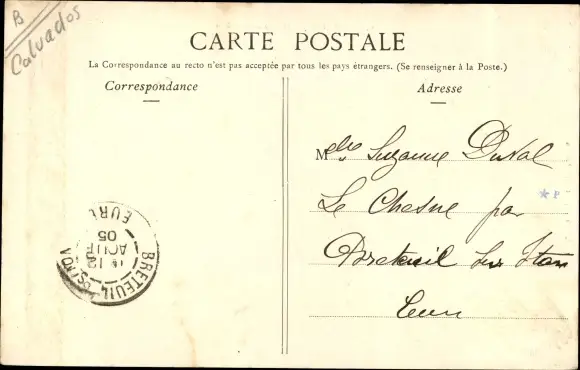 B
Calvados
CARTE POSTALE
La Correspondance au recto n'est pas acceptée par tous les pays étrangers. (Se renseigner à la Poste.)
Correspondance
Adresse
Melle Suzanne Duval
Le Chesne par
Breteuil sur Iton
Eure
BRETEUIL-S-ITON
12
AOUT
05
EURE